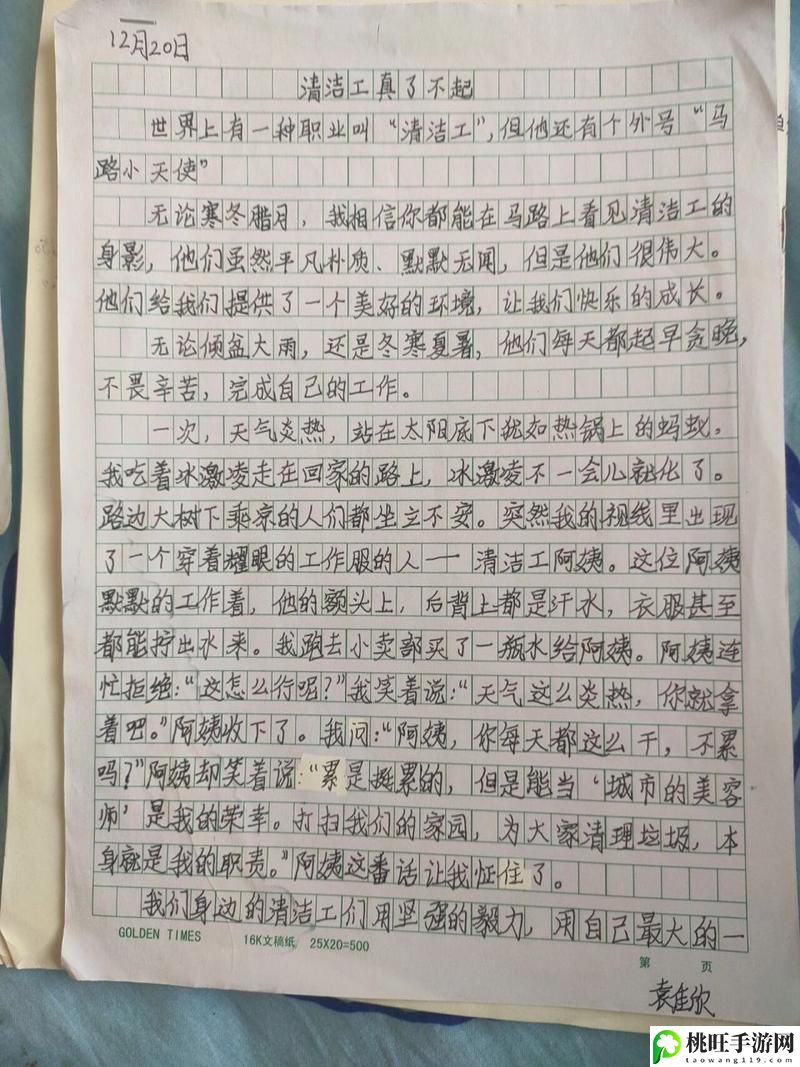 12月20日
清洁工真了不起
世界上有一种职业叫“清洁工”,但他还有个外号“马
路小天使”
无论寒冬腊月，我相信你都能在马路上看见清洁工的
身影，他们虽然平凡朴质、默默无闻，但是他们很伟大。
他们给我们提供了一个美好的环境，让我们快乐的成长。
无论倾盆大雨，还是冬寒夏暑，他们每天都起早贪晚，
不畏辛苦，完成自己的工作。
一次，天气炎热，站在太阳底下犹如热锅上的蚂蚁。
我吃着冰激凌走在回家的路上，冰激凌不一会儿就化了。
路边大树下乘凉的人们都坐立不安。突然我的视线里出现
了一个穿着耀眼的工作服的人——清洁工阿姨。这位阿姨
默默的工作着，他的额头上，后背上都是汗水，衣服甚至
都能拧出水来。我跑去小卖部买了一瓶水给阿姨。阿姨连
忙拒绝：“这怎么行呢？”我笑着说：“天气这么炎热，你就拿
着吧。”阿姨收下了。我问：“阿姨，你每天都这么干，不累
吗？”阿姨却笑着说：“累是挺累的，但是能当‘城市的美容
师’是我的荣幸。打扫我们的家园，为大家清理垃圾，本
身就是我的职责。”阿姨这番话让我怔住了。
我们身边的清洁工们用坚强的毅力，用自己最大的一
GOLDEN TIMES 16K文稿纸 25X20=500
第 页
袁佳欣
桃旺手游网
taowang119.com